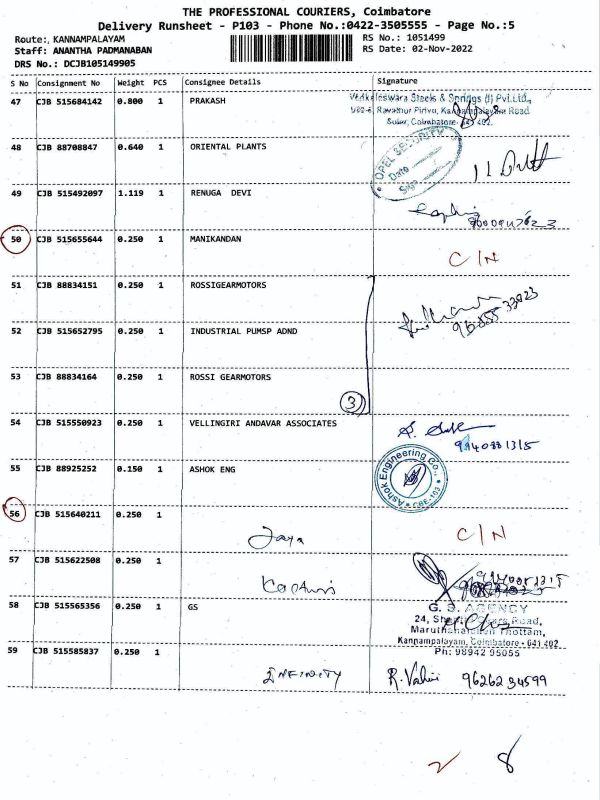 THE PROFESSIONAL COURIERS, Coimbatore
Delivery Runsheet - P103 - Phone No.:0422-3505555 - Page No.:5
Route:, KANNAMPALAYAM
RS No.: 1051499
Staff: ANANTHA PADMANABAN
RS Date: 02-Nov-2022
DRS No.: DCJB105149905
S No Consignment No Weight PCS Consignee Details Signature
47 CJB 515684142 0.800 1 PRAKASH
Venkateswara Steels & Springs (I) Pvt.Ltd.,
Sulur, Coimbatore- 641 402.
48 CJB 88708847 0.640 1 ORIENTAL PLANTS
OPEL SECURITY
Date
Sign
49 CJB 515492097 1.119 1 RENUGA DEVI
50 CJB 515655644 0.250 1 MANIKANDAN
C/N
51 CJB 88834151 0.250 1 ROSSIGEARMOTORS
52 CJB 515652795 0.250 1 INDUSTRIAL PUMSP ADND
53 CJB 88834164 0.250 1 ROSSI GEARMOTORS
3
54 CJB 515550923 0.250 1 VELLINGIRI ANDAVAR ASSOCIATES
9940881315
55 CJB 88925252 0.150 1 ASHOK ENG
Ashok Engineering Co.,
CBE-103
56 CJB 515640211 0.250 1
Jaya
C/N
57 CJB 515622508 0.250 1
58 CJB 515565356 0.250 1 GS
G. S. AGENCY
Kannampalayam, Coimbatore - 641 402
Ph: 98942 95055
59 CJB 515585837 0.250 1
INFINITY R. Valli 9626234599
2 8